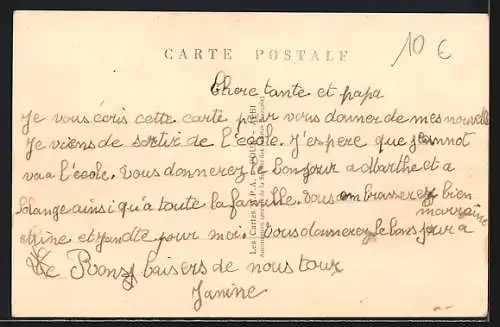 CARTE POSTALE
10 €
Chere tante et papa
Je vous écris cette carte pour vous donner de mes nouvelle
Je viens de sortir de l'école. J'espere que jeannot
va a l'école. Vous donnerez le bonjour a Marthe et a
blange ainsi qu'a toute la famille. Vous embrasserez bien
marraine
et pour moi. Vous donnerez le bonjour a
Bons baisers de nous tous
Janine
Les Cartes A.P.A.